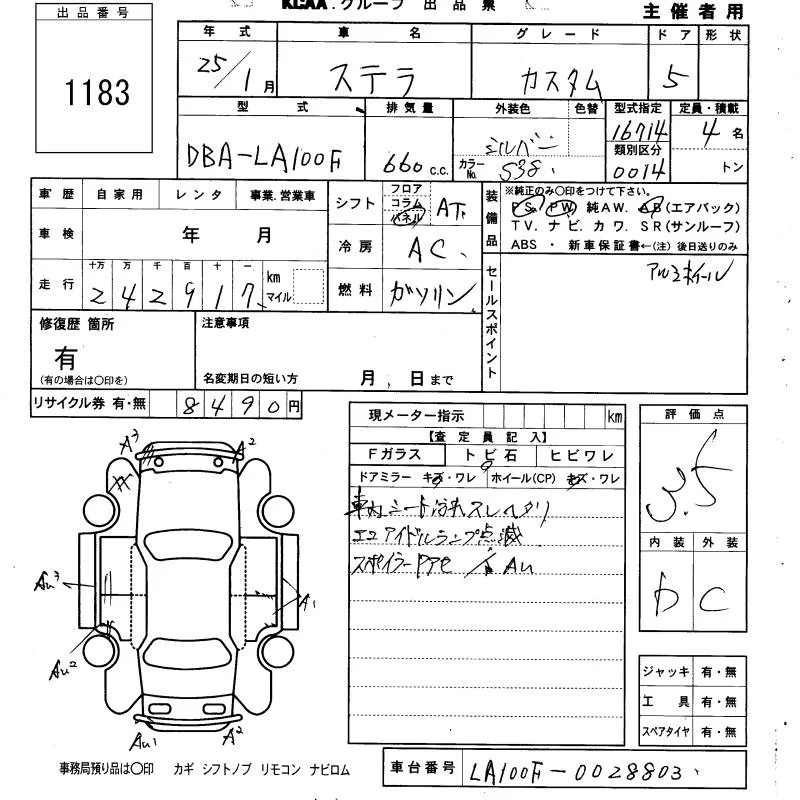 KCAA.グループ 出品票 主催者用
出品番号
1183
年式 車名 グレード ドア 形状
25/1月 ステラ カスタム 5
型式 排気量 外装色 色替 型式指定 定員・積載
DBA-LA100F 660c.c. シルバー 16714 4名
カラーNo. S38 類別区分 0014 トン
車歴 自家用 レンタ 事業.営業車
シフト フロア コラム パネル AT
装備品 ※純正のみ○印をつけて下さい。
PS. PW. 純AW. AB(エアバック)
TV. ナビ. カワ. SR(サンルーフ)
ABS ・ 新車保証書←(注) 後日送りのみ
車検 年 月
冷房 AC
走行 十万 万 千 百 十 一
242917 km マイル
燃料 ガソリン
セールスポイント アルミホイール
修復歴 箇所
有
(有の場合は○印を)
注意事項
名変期日の短い方 月 日まで
リサイクル券 有・無 8490円
現メーター指示 km
【査定員記入】
Fガラス トビ石 ヒビワレ
ドアミラー キズ・ワレ ホイール(CP) キズ・ワレ
車内シート汚れスレヘタリ
エコアイドルランプ点滅
スポイラー
AU
評価点
3.5
内装 外装
D C
A3 A2
Au3 A1
Au2
Au1 A2
ジャッキ 有・無
工具 有・無
スペアタイヤ 有・無
事務局預り品は○印 カギ シフトノブ リモコン ナビロム
車台番号 LA100F-0028803